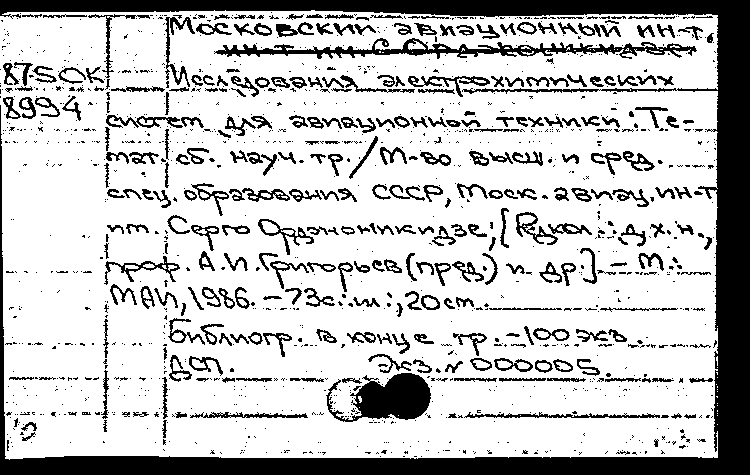 Московский авиационный ин-т.
ин-т им. С. Орджоникидзе.
87-5ОК Исследования электрохимических
8994
систем для авиационной техники: Те-
мат. сб. науч. тр. / М-во высш. и сред.
спец. образования СССР, Моск. авиац. ин-т
им. Серго Орджоникидзе; [Редкол.: д.х.н.,
проф. А.И. Григорьев (пред.) и др.] – М.:
МАИ, 1986. – 73с.: ил.; 20 см.
Библиогр. в конце тр. – 100 экз.
ДСП. Экз. N 000005.